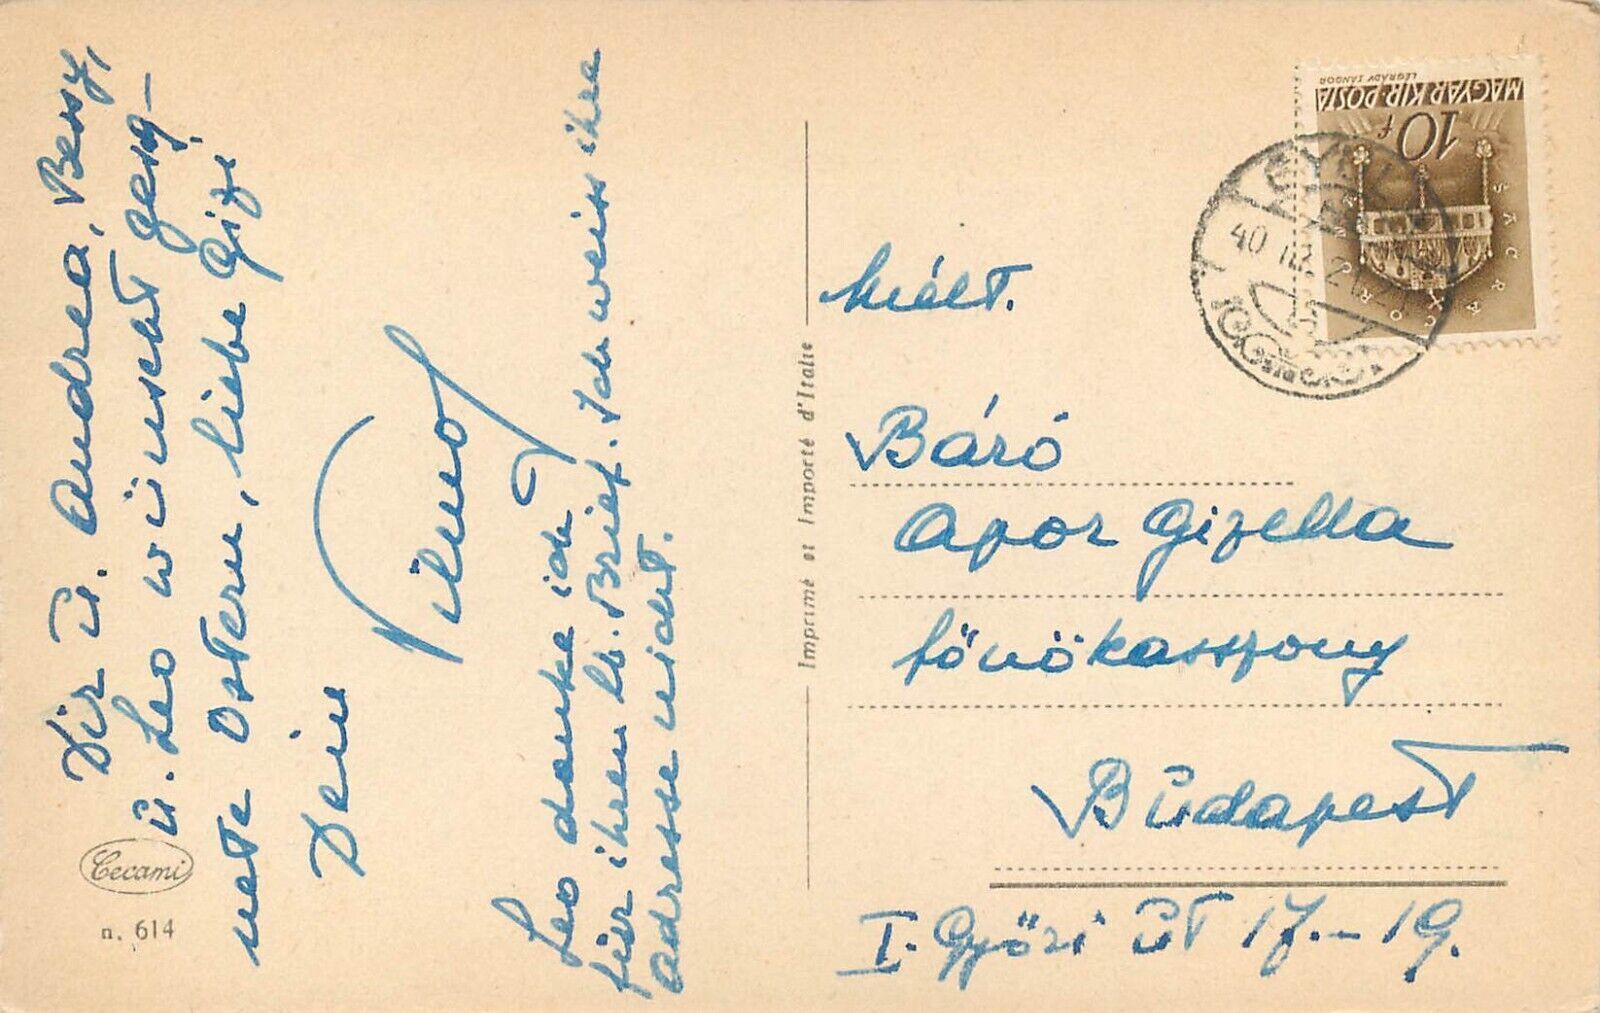 Dir u. Andrea, Bessy,
u. Leo wünscht geseg-
nete Ostern, liebe Gizi
Dein
Vilmos
Leo danke ich
für ihren lb. Brief. Ich weiss ihre
Adresse nicht.
Cecami
n. 614
Imprimé et Importé d'Italie
LÉGRÁDY SÁNDOR
MAGYAR·KIR·POSTA
10 f
SACRA
CORO
40 III
Mélt.
Báró
Apor Gizella
főnökasszony
Budapest
I. Győri út 17.-19.